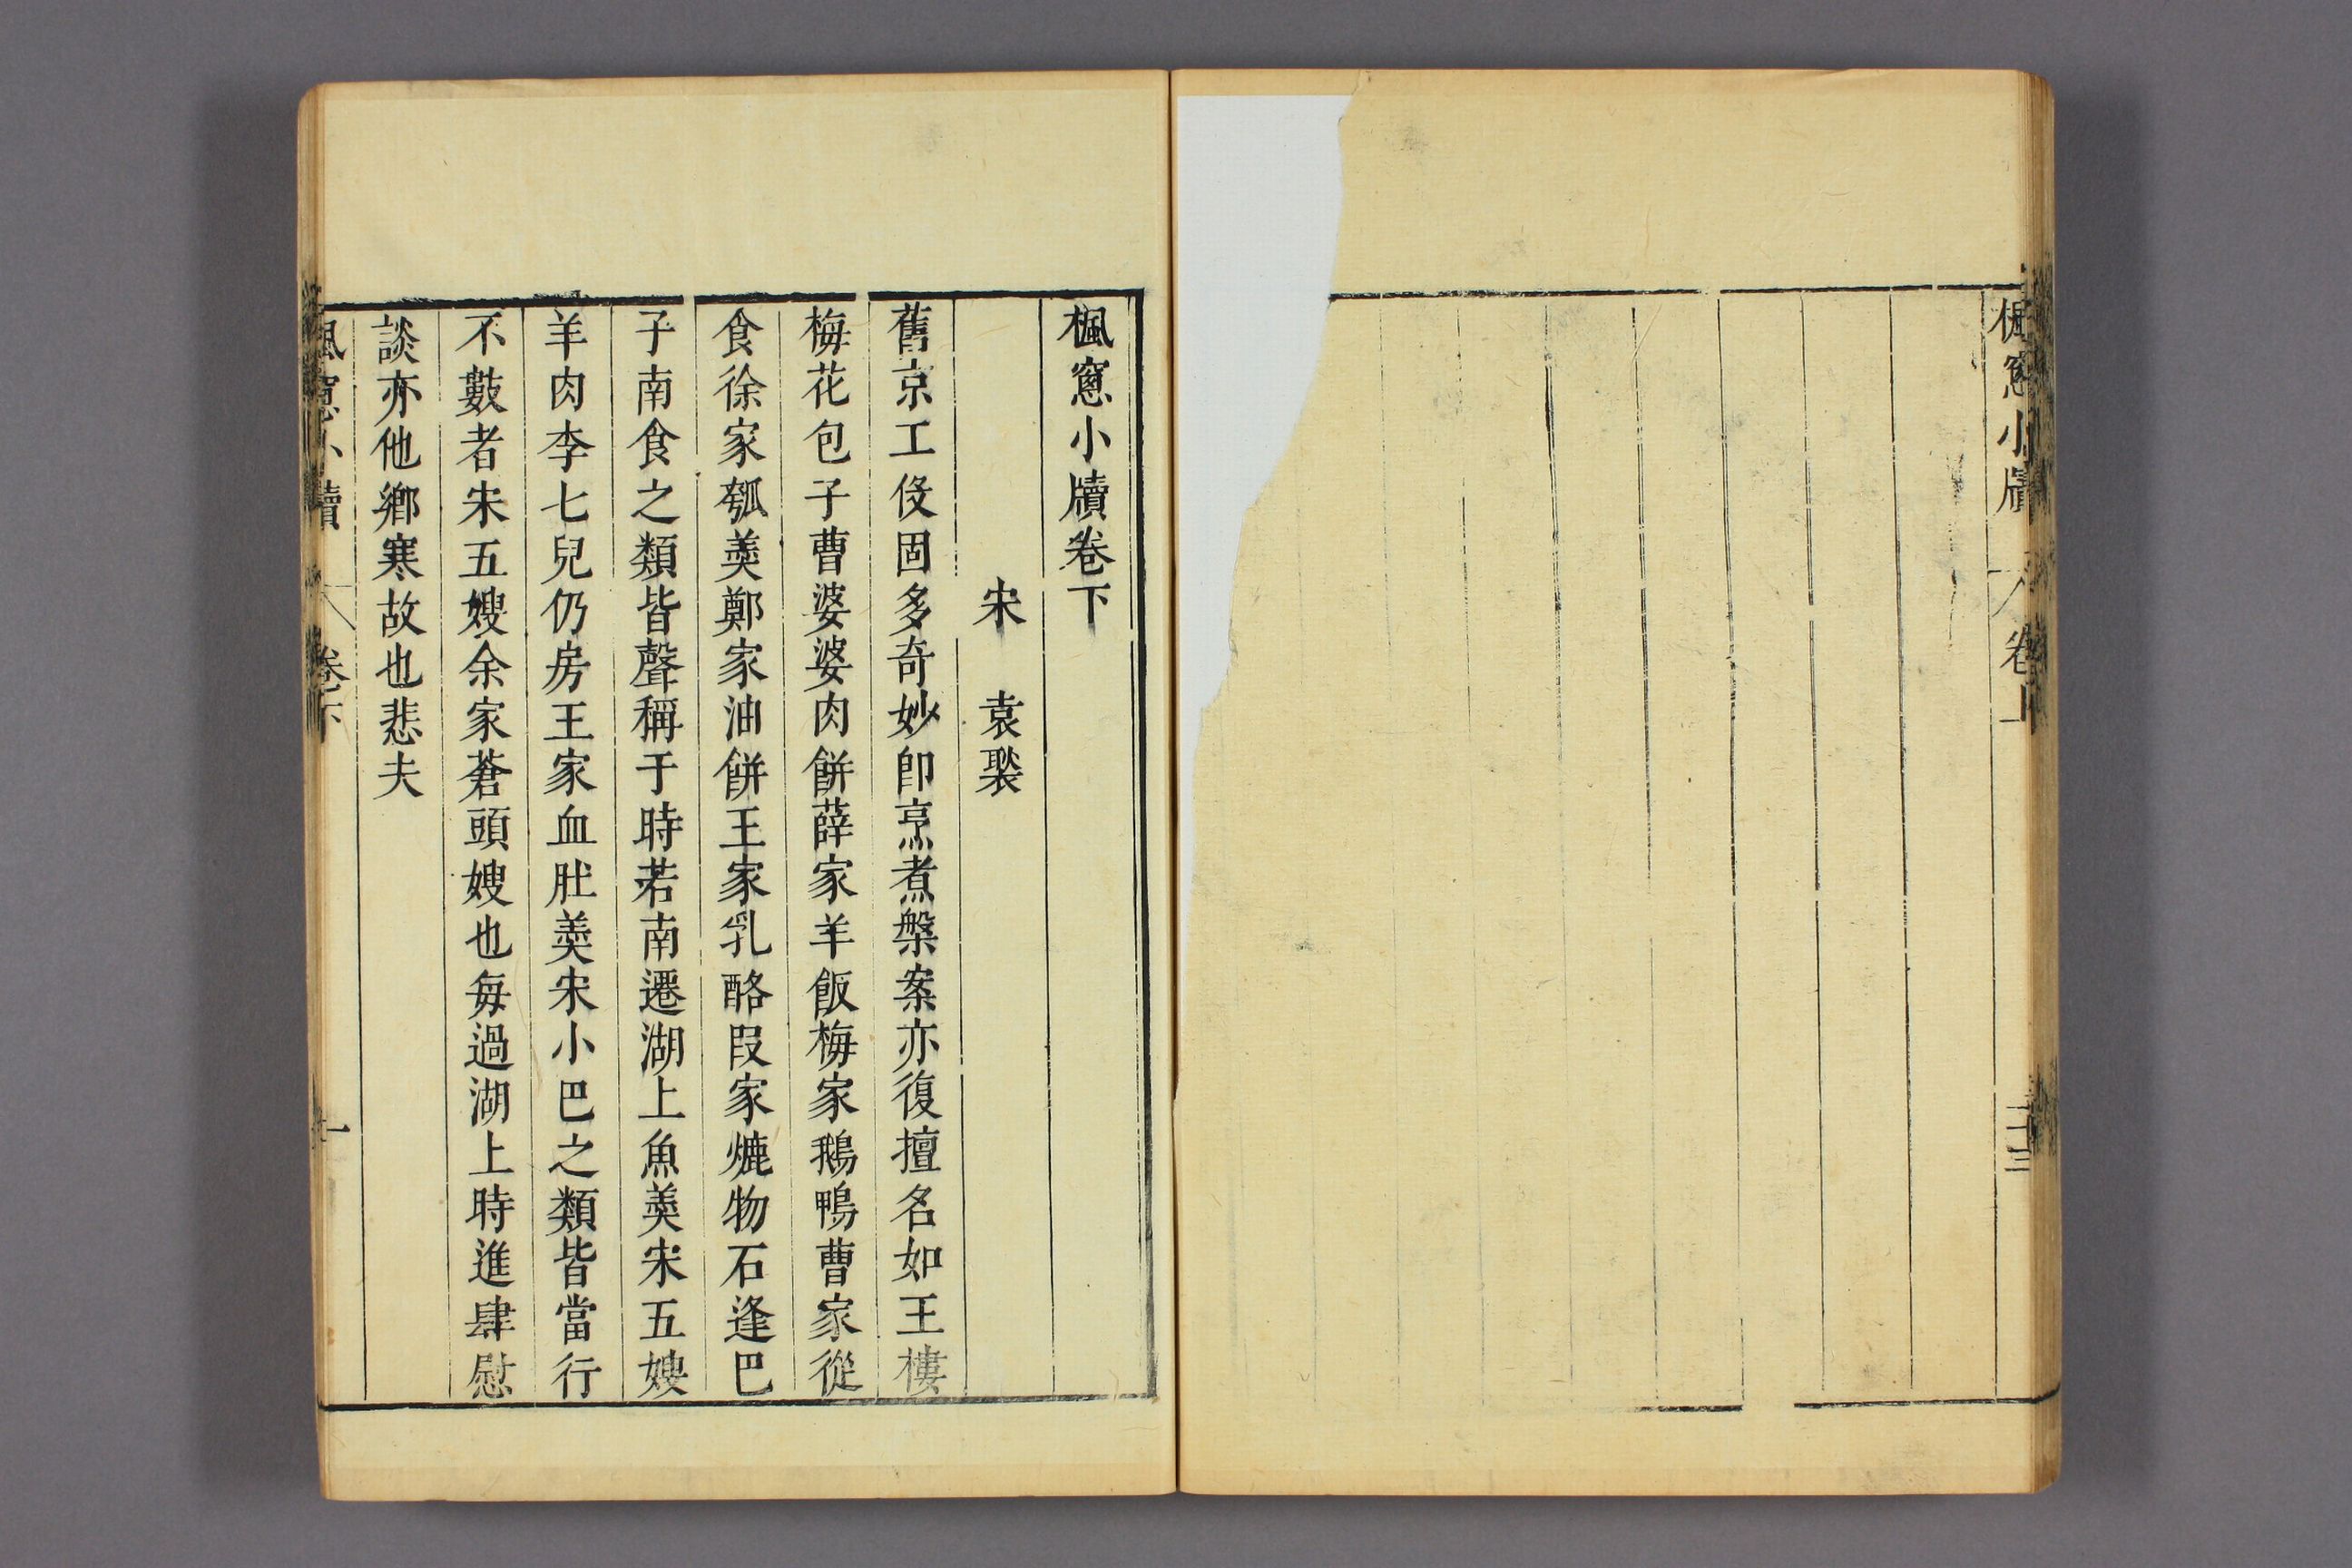 楓窻小牘
卷上
二十三
楓窻小牘卷下
宋　袁褧
舊京工伎固多奇妙卽烹煮槃案亦復擅名如王樓
梅花包子曹婆婆肉餅薛家羊飯梅家鵝鴨曹家從
食徐家瓠羹鄭家油餅王家乳酪段家爊物石逢巴
子南食之類皆聲稱于時若南遷湖上魚羹宋五嫂
羊肉李七兒仍房王家血肚羹宋小巴之類皆當行
不數者宋五嫂余家蒼頭嫂也每過湖上時進肆慰
談亦他鄉寒故也悲夫
楓窻小牘
卷下
一